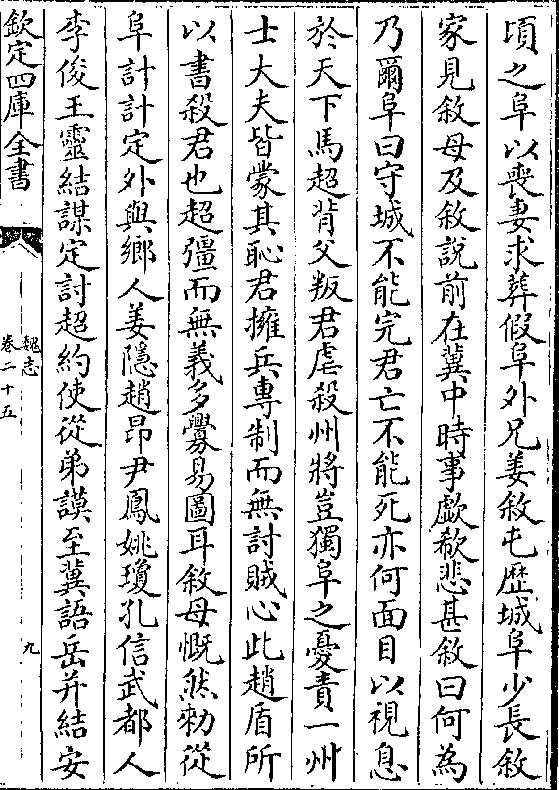 頃之阜以喪妻求葬假阜外兄姜敘屯歴城阜少長敘
家見敘母及敘說前在冀中時事歔欷悲甚敘曰何為
乃爾阜曰守城不能完君亡不能死亦何面目以視息
於天下馬超背父叛君虐殺州將豈獨阜之憂責一州
士大夫皆蒙其恥君擁兵專制而無討賊心此趙盾所
以書殺君也超彊而無義多釁易圖耳敘母慨然勑從
阜計計定外與鄉人姜隱趙昂尹鳳姚瓊孔信武都人
李俊王靈結謀定討超約使從弟謨至冀語岳并結安
欽定四庫全書
魏志
卷二十五
九